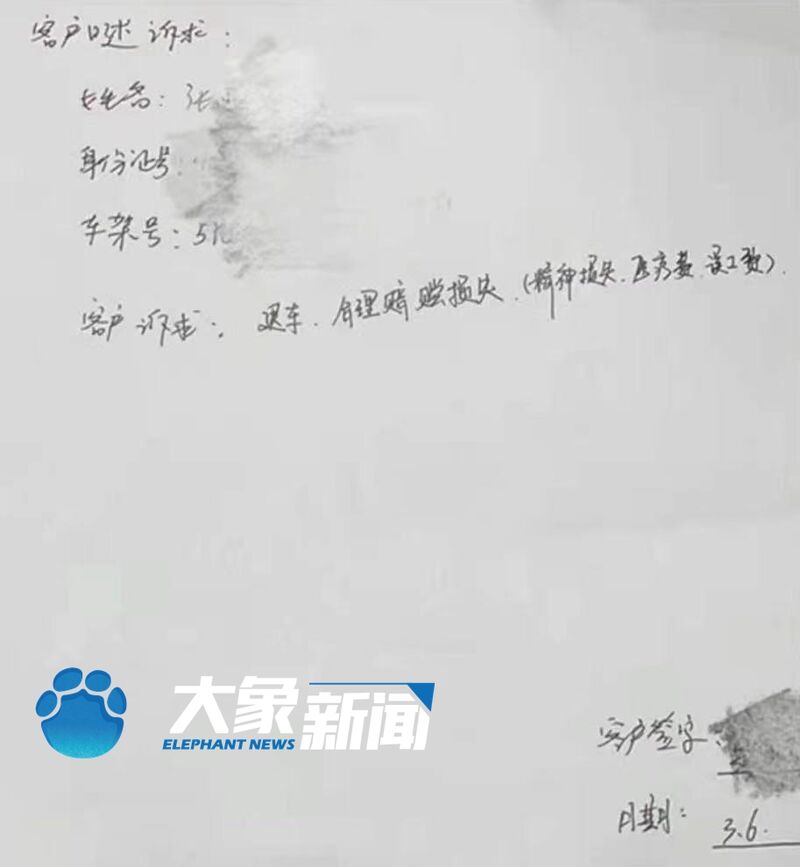 客户口述诉求:
姓名: 张
身份证号:
车架号: 5
客户诉求: 退车、合理赔赔损失、(精神损失、医疗费、误工费).
大象新闻
ELEPHANT NEWS
客户签字:
日期: 3.6.